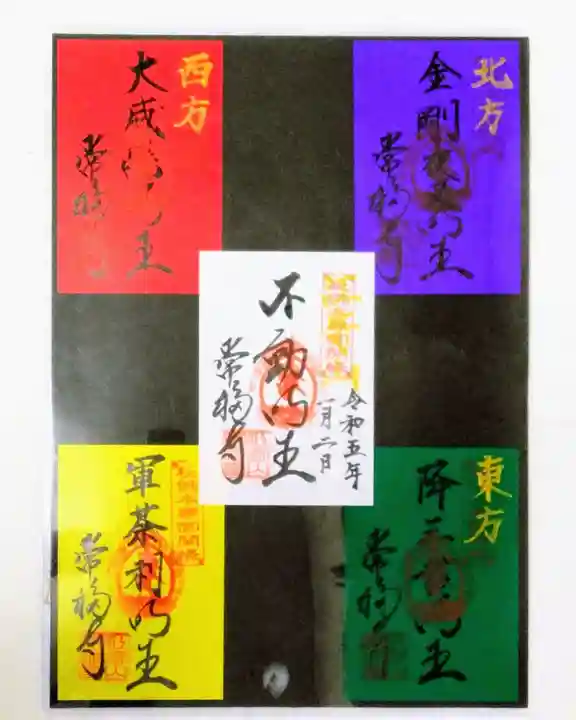 北方
金剛夜叉明王
常福寺
西方
大威徳明王
常福寺
不動明王
令和五年
一月二日
常福寺
東方
降三世明王
常福寺
軍荼利明王
常福寺